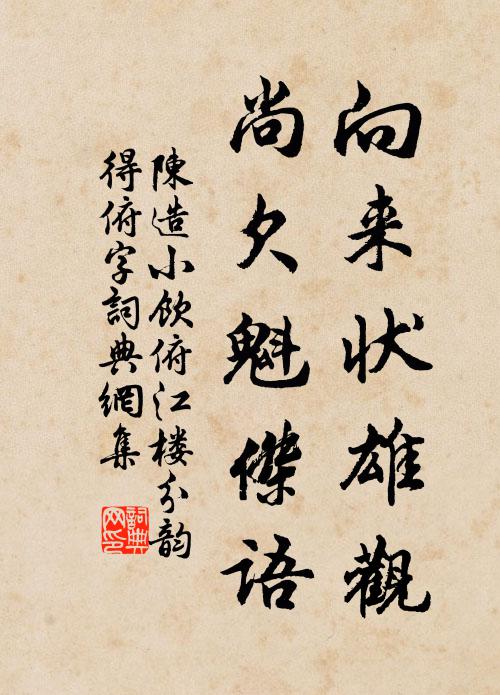 向来状雄觀
尚欠魁傑語
陳造小飲俯江楼分韵
得俯字詞典網集
詞典网印